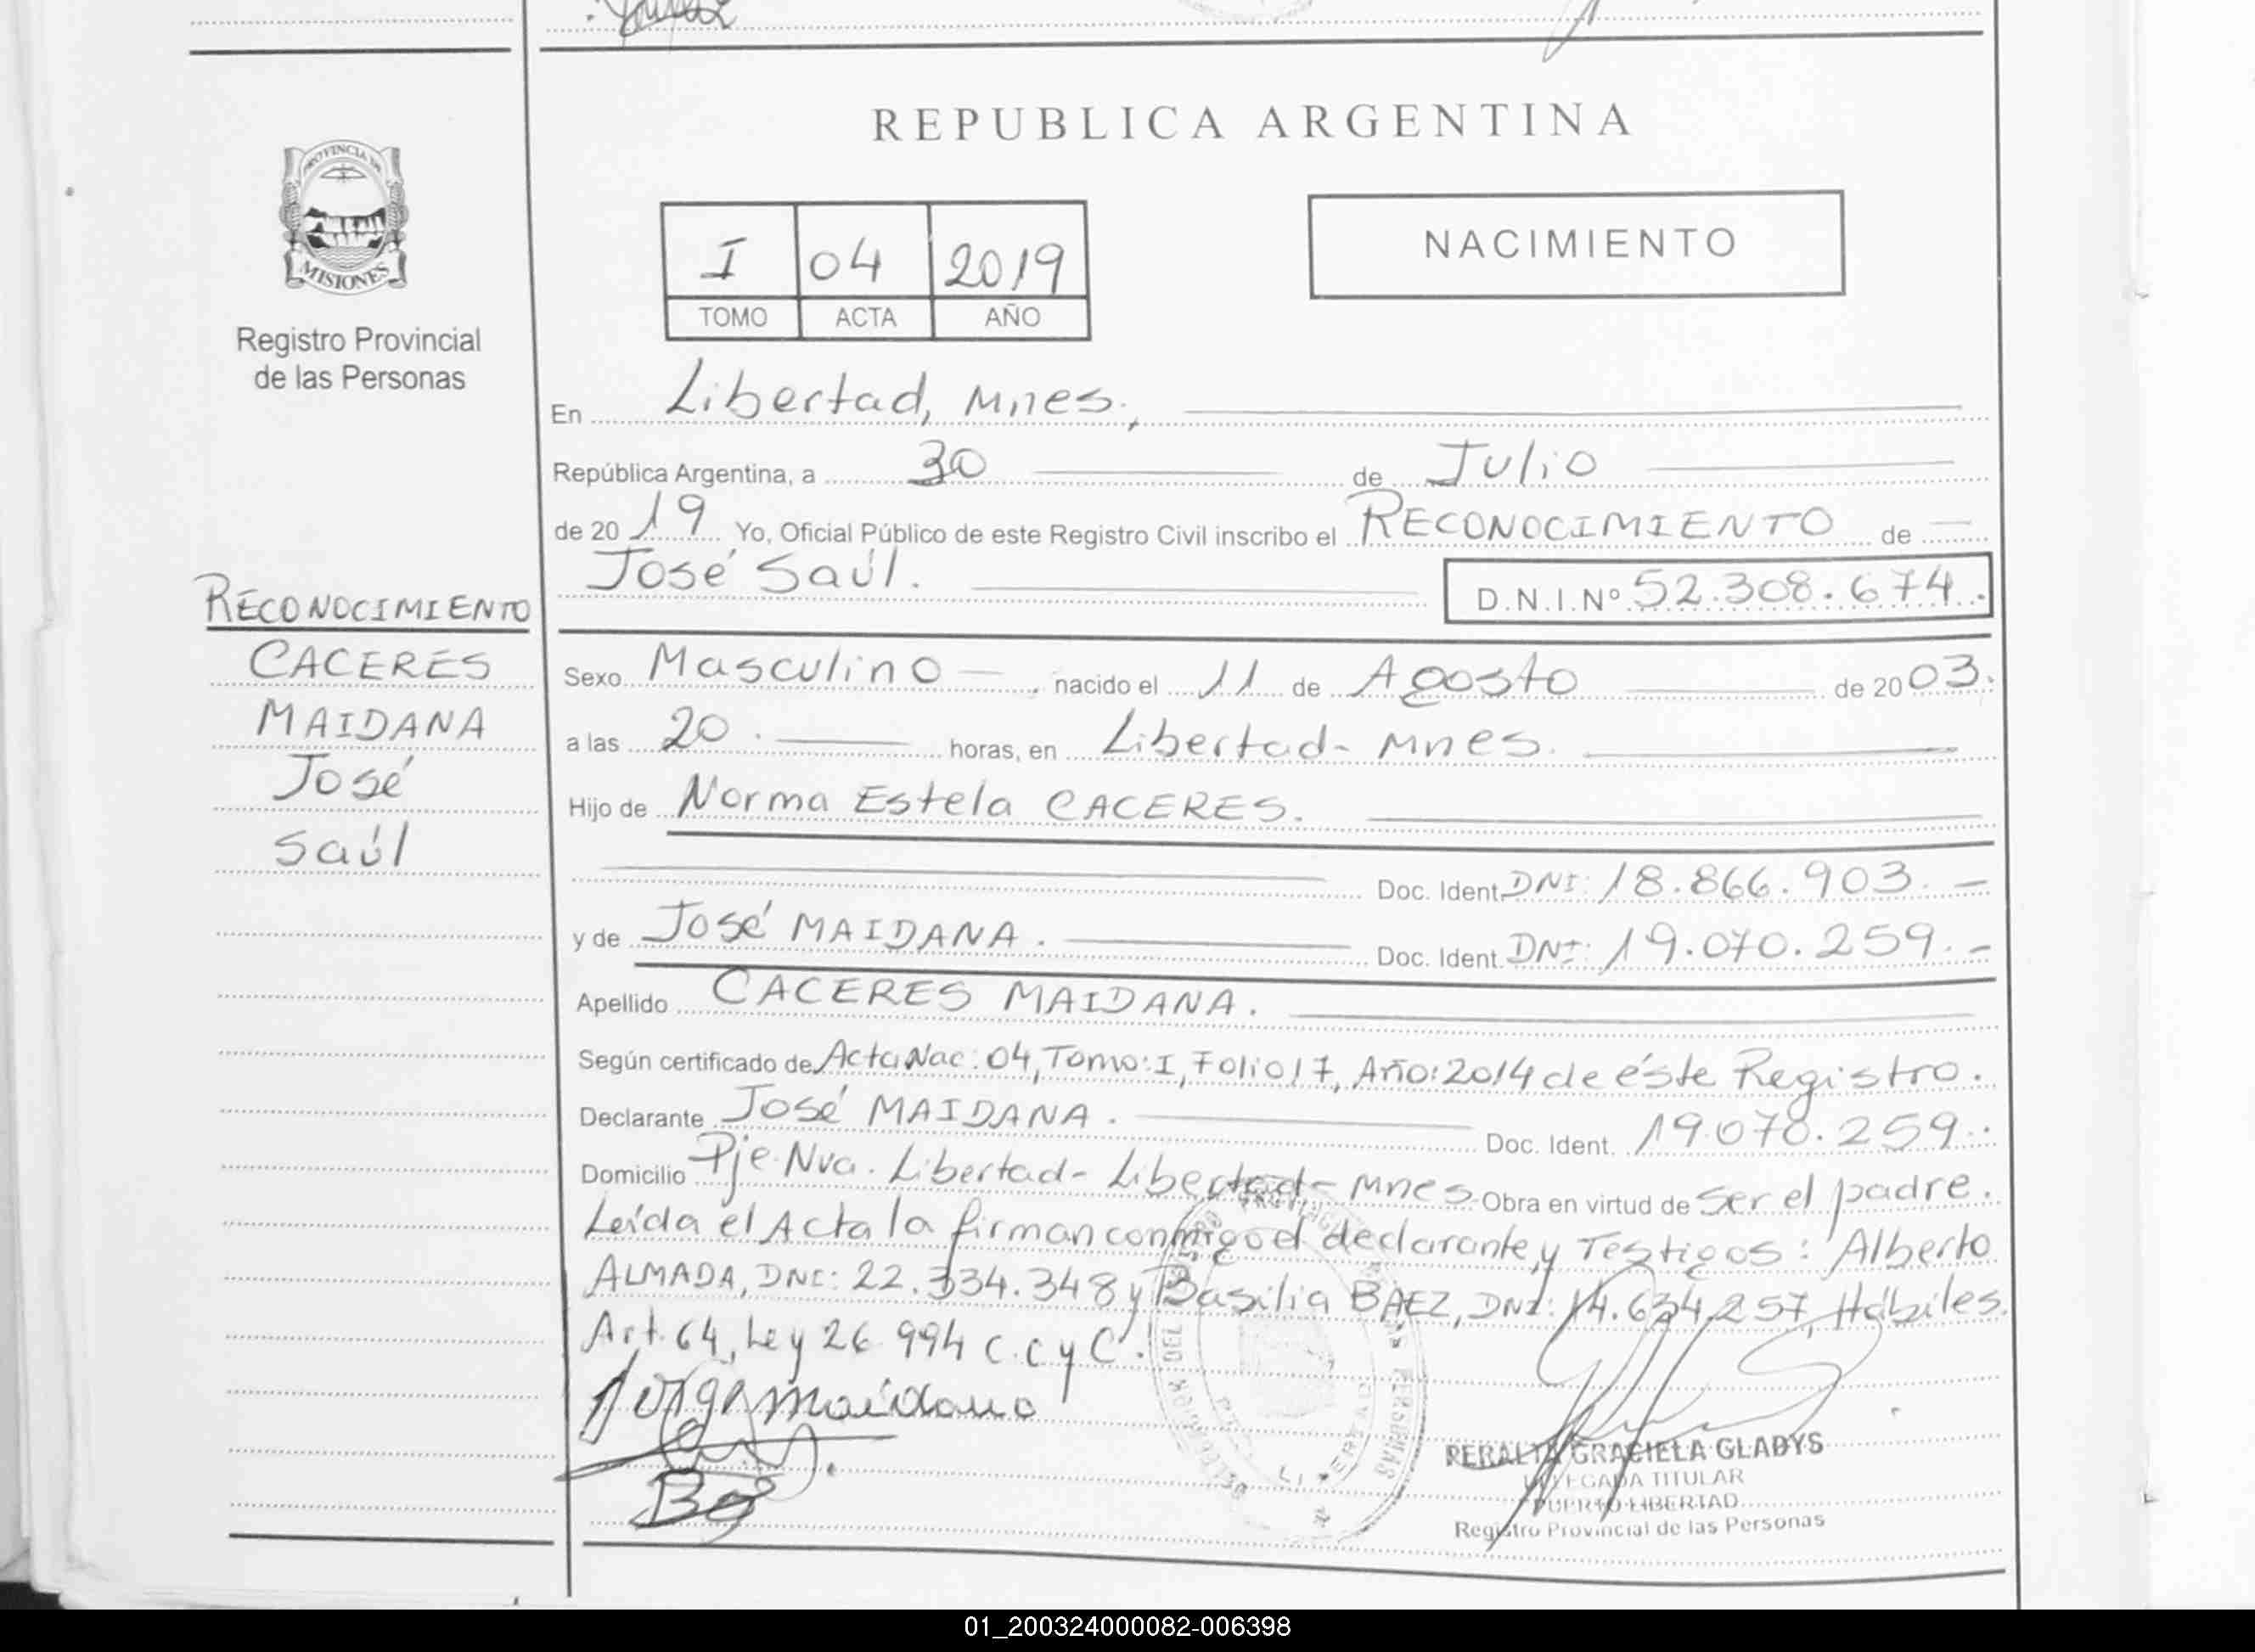 REPUBLICA ARGENTINA
PROVINCIA DE
MISIONES
Registro Provincial
de las Personas
I 04 2019
TOMO ACTA AÑO
NACIMIENTO
En Libertad, Mnes.,
República Argentina, a 30 de Julio
de 2019 Yo, Oficial Público de este Registro Civil inscribo el RECONOCIMIENTO de
José Saúl. D.N.I.Nº 52.308.674.
RECONOCIMIENTO
CACERES
MAIDANA
José
Saúl
Sexo Masculino, nacido el 11 de Agosto de 2003.
a las 20. horas, en Libertad- Mnes.
Hijo de Norma Estela CACERES.
Doc. Ident. DNI: 18.866.903.-
y de José MAIDANA. Doc. Ident. DNI: 19.070.259.-
Apellido CACERES MAIDANA.
Según certificado de Acta Nac: 04, Tomo: I, Folio 17, Año: 2014 de éste Registro.
Declarante José MAIDANA. Doc. Ident. 19.070.259.
Domicilio Pje. Nva. Libertad- Libertad- Mnes. Obra en virtud de Ser el padre.
Leída el Acta la firman conmigo el declarante y Testigos: Alberto
ALMADA, DNI: 22.334.348 y Basilia BAEZ, DNI: 14.634.257, Hábiles.
Art. 64, Ley 26.994 C.C y C.
maidana
PERALTA GRACIELA GLADYS
DELEGADA TITULAR
PUERTO LIBERTAD
Registro Provincial de las Personas
01_200324000082-006398